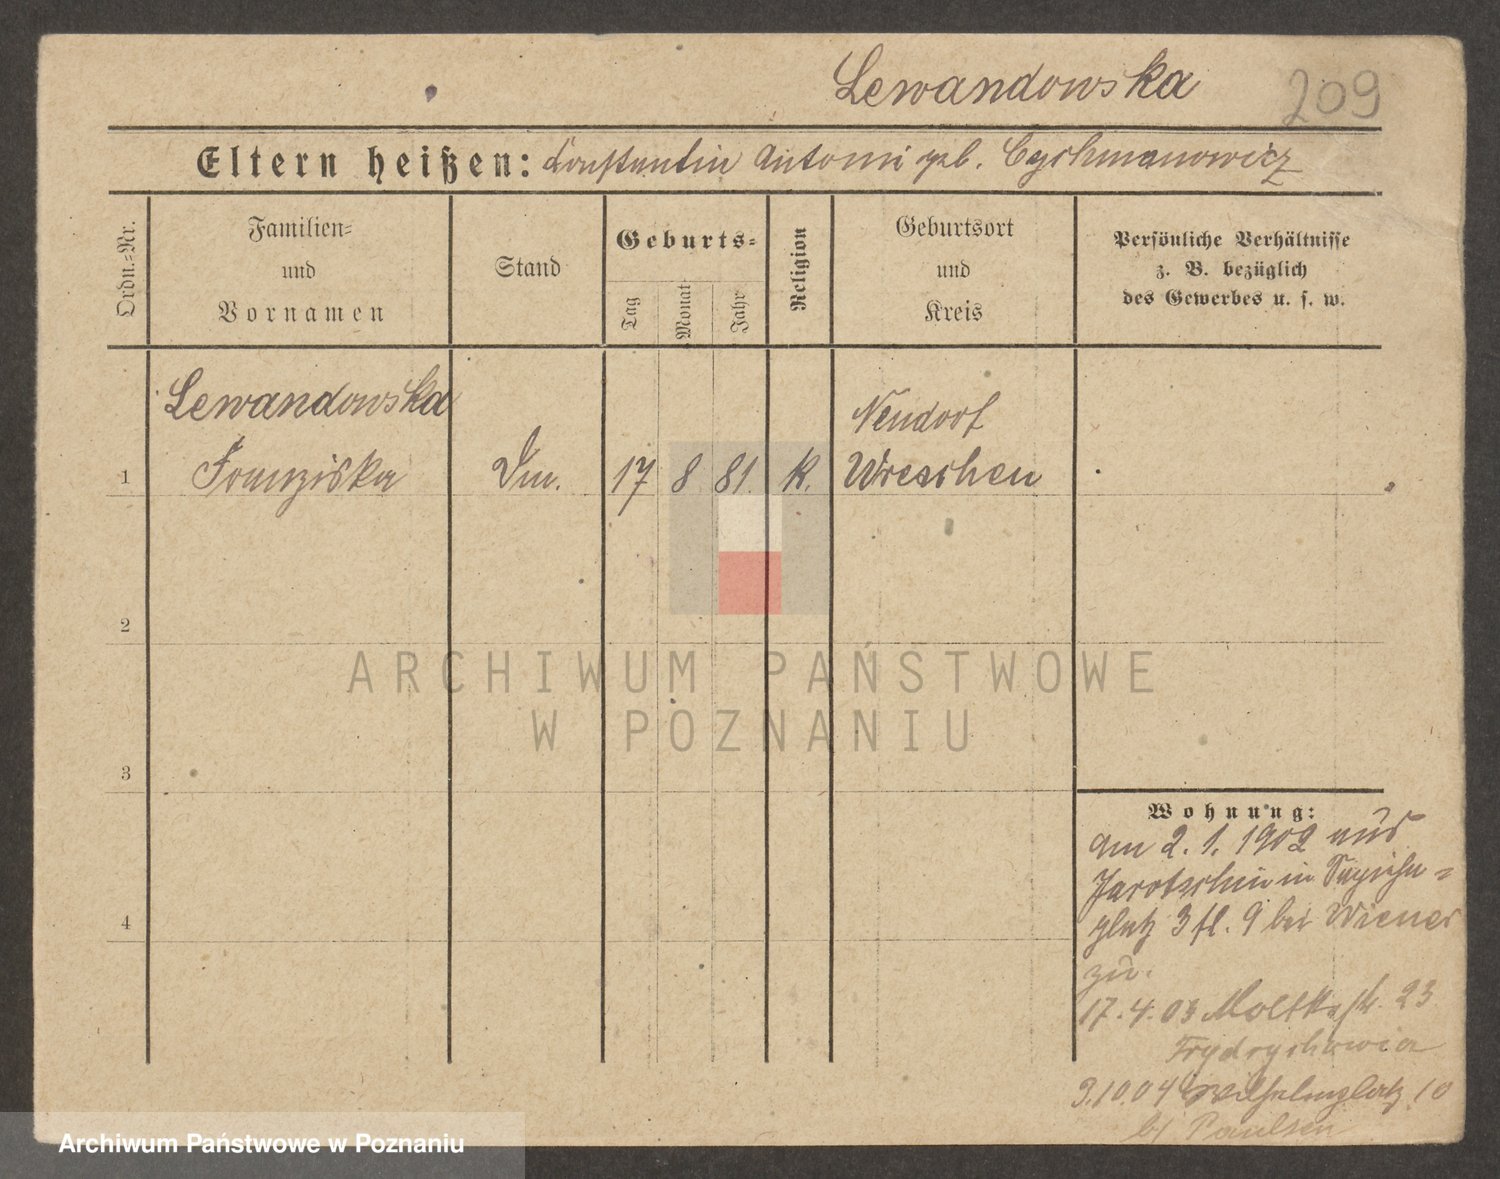 Lewandowska
209
Eltern heißen: Constantin Antonni geb. Cychmanowicz
Ordn.=Nr.
Familien= und Vornamen
Stand
Geburts=
Tag
Monat
Jahr
Religion
Geburtsort und Kreis
Persönliche Verhältnisse
z. B. bezüglich
des Gewerbes u. s. w.
Lewandowska
Neudorf
1 Franziska 17 8 81. k. Wreschen
2
3
4
Wohnung:
am 2. 1. 1902 aus
Jarotschin in Sapieha=
platz 3 fl. 9 bei Wiener
zu.
17. 4. 03 Moltkestr. 23
Frydrychowicz
3.10.04 Wilhelmplatz 10
b/ Paulsen
ARCHIWUM PAŃSTWOWE
W POZNANIU
Archiwum Państwowe w Poznaniu